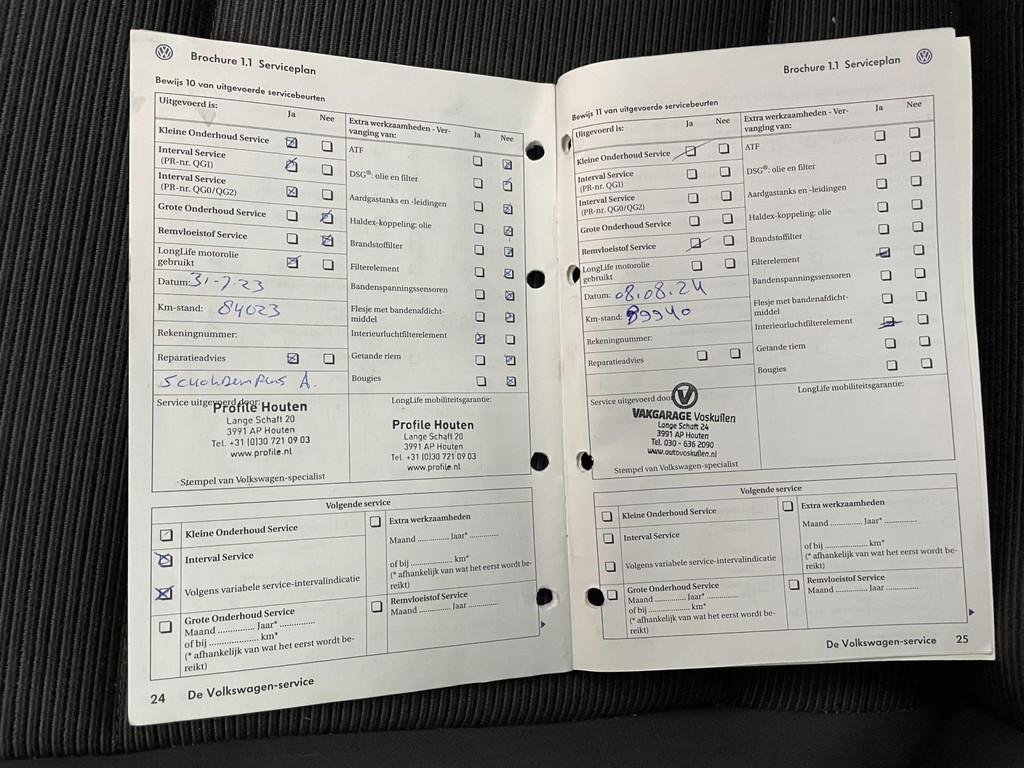 Brochure 1.1 Serviceplan
Bewijs 10 van uitgevoerde servicebeurten
Uitgevoerd is:
Ja Nee
Kleine Onderhoud Service
Interval Service
(PR-nr. QG1)
Interval Service
(PR-nr. QG0/QG2)
Grote Onderhoud Service
Remvloeistof Service
LongLife motorolie
gebruikt
Datum: 31-7-23
Km-stand: 84023
Rekeningnummer:
Reparatieadvies
A.
Service uitgevoerd door:
Profile Houten
Lange Schaft 20
3991 AP Houten
Tel. +31 (0)30 721 09 03
www.profile.nl
Stempel van Volkswagen-specialist
Extra werkzaamheden - Ver-
vanging van:
Ja Nee
ATF
DSG®: olie en filter
Aardgastanks en -leidingen
Haldex-koppeling: olie
Brandstoffilter
Filterelement
Bandenspanningssensoren
Flesje met bandenafdicht-
middel
Interieurluchtfilterelement
Getande riem
Bougies
LongLife mobiliteitsgarantie:
Profile Houten
Lange Schaft 20
3991 AP Houten
Tel. +31 (0)30 721 09 03
www.profile.nl
Volgende service
Kleine Onderhoud Service
Interval Service
Volgens variabele service-intervalindicatie
Grote Onderhoud Service
Maand ............... Jaar* ...............
of bij .................... km*
(* afhankelijk van wat het eerst wordt be-
reikt)
Extra werkzaamheden
Maand ............. Jaar* .............
of bij .................... km*
(* afhankelijk van wat het eerst wordt be-
reikt)
Remvloeistof Service
Maand ............. Jaar .............
24 De Volkswagen-service
Brochure 1.1 Serviceplan
Bewijs 11 van uitgevoerde servicebeurten
Uitgevoerd is:
Ja Nee
Kleine Onderhoud Service
Interval Service
(PR-nr. QG1)
Interval Service
(PR-nr. QG0/QG2)
Grote Onderhoud Service
Remvloeistof Service
LongLife motorolie
gebruikt
Datum: 08.08.24
Km-stand: 89940
Rekeningnummer:
Reparatieadvies
Service uitgevoerd door
VAKGARAGE Voskuilen
Lange Schaft 24
3991 AP Houten
Tel. 030 - 636 2090
www.autovoskuilen.nl
Stempel van Volkswagen-specialist
Extra werkzaamheden - Ver-
vanging van:
Ja Nee
ATF
DSG®: olie en filter
Aardgastanks en -leidingen
Haldex-koppeling: olie
Brandstoffilter
Filterelement
Bandenspanningssensoren
Flesje met bandenafdicht-
middel
Interieurluchtfilterelement
Getande riem
Bougies
LongLife mobiliteitsgarantie:
Volgende service
Kleine Onderhoud Service
Interval Service
Volgens variabele service-intervalindicatie
Grote Onderhoud Service
Maand ............... Jaar* ...............
of bij .................... km*
(* afhankelijk van wat het eerst wordt be-
reikt)
Extra werkzaamheden
Maand ............. Jaar* .............
of bij .................... km*
(* afhankelijk van wat het eerst wordt be-
reikt)
Remvloeistof Service
Maand ............. Jaar .............
De Volkswagen-service 25